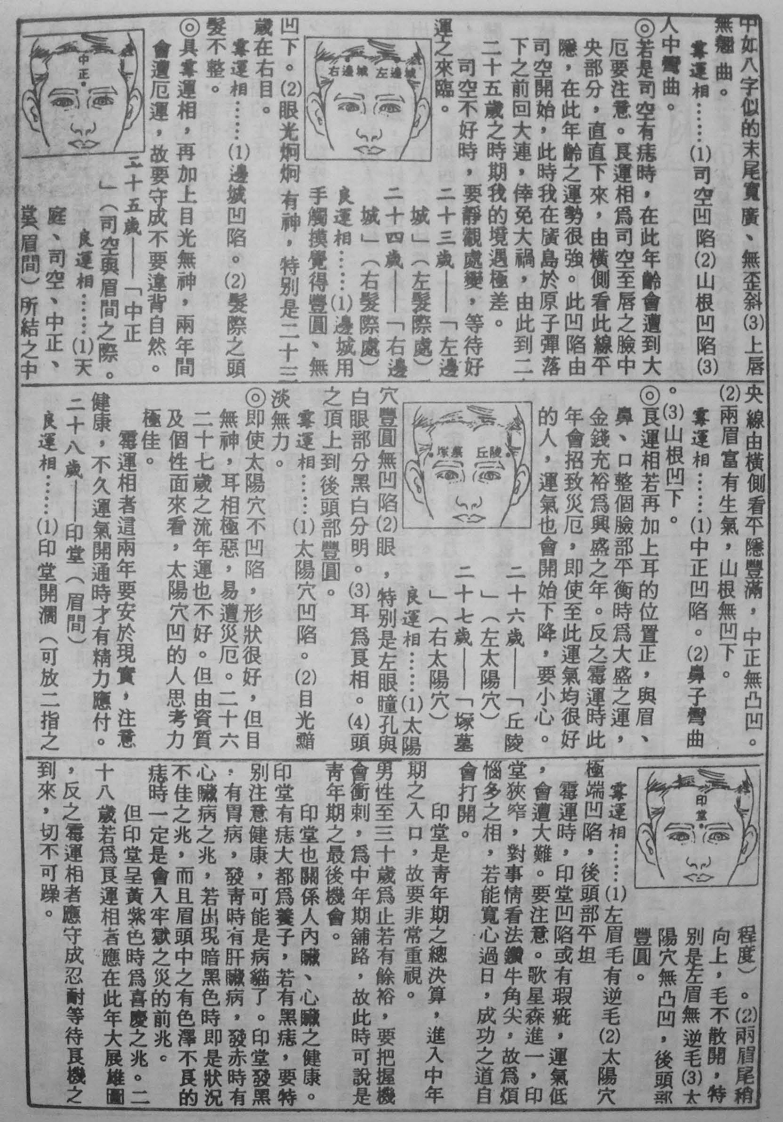 中如八字似的末尾寬廣、無歪斜(3)上唇
無翹曲。
霉運相……(1)司空凹陷(2)山根凹陷(3)
人中彎曲。
◎若是司空有痣時，在此年齡會遭到大
厄要注意。良運相爲司空至唇之臉中
央部分，直直下來，由橫側看此線平
隱，在此年齡之運勢很強。此凹陷由
司空開始，此時我在廣島於原子彈落
下之前回大連，倖免大禍，由此到二十
二十五歲之時期我的境遇極差。
司空不好時，要靜觀處變，等待好
運之來臨。
右邊城 左邊城
二十三歲——「左邊
城」（左髮際處）
二十四歲——「右邊
城」（右髮際處）
良運相……(1)邊城用
手觸摸覺得豐圓、無
凹下。(2)眼光炯炯有神，特別是二十三
歲在右目。
霉運相……(1)邊城凹陷。(2)髮際之頭
髮不整。
◎具霉運相，再加上目光無神，兩年間
會遭厄運，故要守成不要違背自然。
中正
二十五歲——「中正
」（司空與眉間之際。
良運相……(1)天
庭、司空、中正、
嘗（眉間）所結之中
央線由橫側看平隱豐滿，中正無凸凹。
(2)兩眉富有生氣，山根無凹下。
霉運相……(1)中正凹陷。(2)鼻子彎曲
。(3)山根凹下。
◎良運相若再加上耳的位置正，與眉、
鼻、口整個臉部平衡時爲大盛之運，
金錢充裕爲興盛之年。反之霉運時此
年會招致災厄，即使至此運氣均很好
的人，運氣也會開始下降，要小心。
塚墓 丘陵
二十六歲——「丘陵
」（左太陽穴）
二十七歲——「塚墓
」（右太陽穴）
良運相……(1)太陽
穴豐圓無凹陷(2)眼，特別是左眼瞳孔與
白眼部分黑白分明。(3)耳爲良相。(4)頭
之頂上到後頭部豐圓。
霉運相……(1)太陽穴凹陷。(2)目光黯
淡無力。
◎即使太陽穴不凹陷，形狀很好，但目
無神，耳相極惡，易遭災厄。二十六
二十七歲之流年運也不好。但由資質
及個性面來看，太陽穴凹的人思考力
極佳。
霉運相者這兩年要安於現實，注意
健康，不久運氣開通時才有精力應付。
二十八歲——印堂（眉間）
良運相……(1)印堂開濶（可放二指之
印堂
程度）。(2)兩眉尾稍
向上，毛不散開，特
別是左眉無逆毛(3)太
陽穴無凸凹，後頭部
豐圓。
霉運相……(1)左眉毛有逆毛(2)太陽穴
極端凹陷，後頭部平坦
霉運時，印堂凹陷或有瑕疵，運氣低
，會遭大難。要注意。歌星森進一，印
堂狹窄，對事情看法鑽牛角尖，故爲煩
惱多之相，若能寬心過日，成功之道自
會打開。
印堂是靑年期之總決算，進入中年
期之入口，故要非常重視。
男性至三十歲爲止若有餘裕，要把握機
會衝刺，爲中年期舖路，故此時可說是
靑年期之最後機會。
印堂也關係人內臟、心臟之健康。
印堂有痣大都爲養子，若有黑痣，要特
別注意健康，可能是病貓了。印堂發黑
，有胃病，發靑時有肝臟病，發赤時有
心臟病之兆，若出現暗黑色時即是狀況
不佳之兆，而且眉頭中之有色澤不良的
痣時一定是會入牢獄之災的前兆。
但印堂呈黃紫色時爲喜慶之兆。二
十八歲若爲良運相者應在此年大展雄圖
，反之霉運相者應守成忍耐等待良機之
到來，切不可躁。